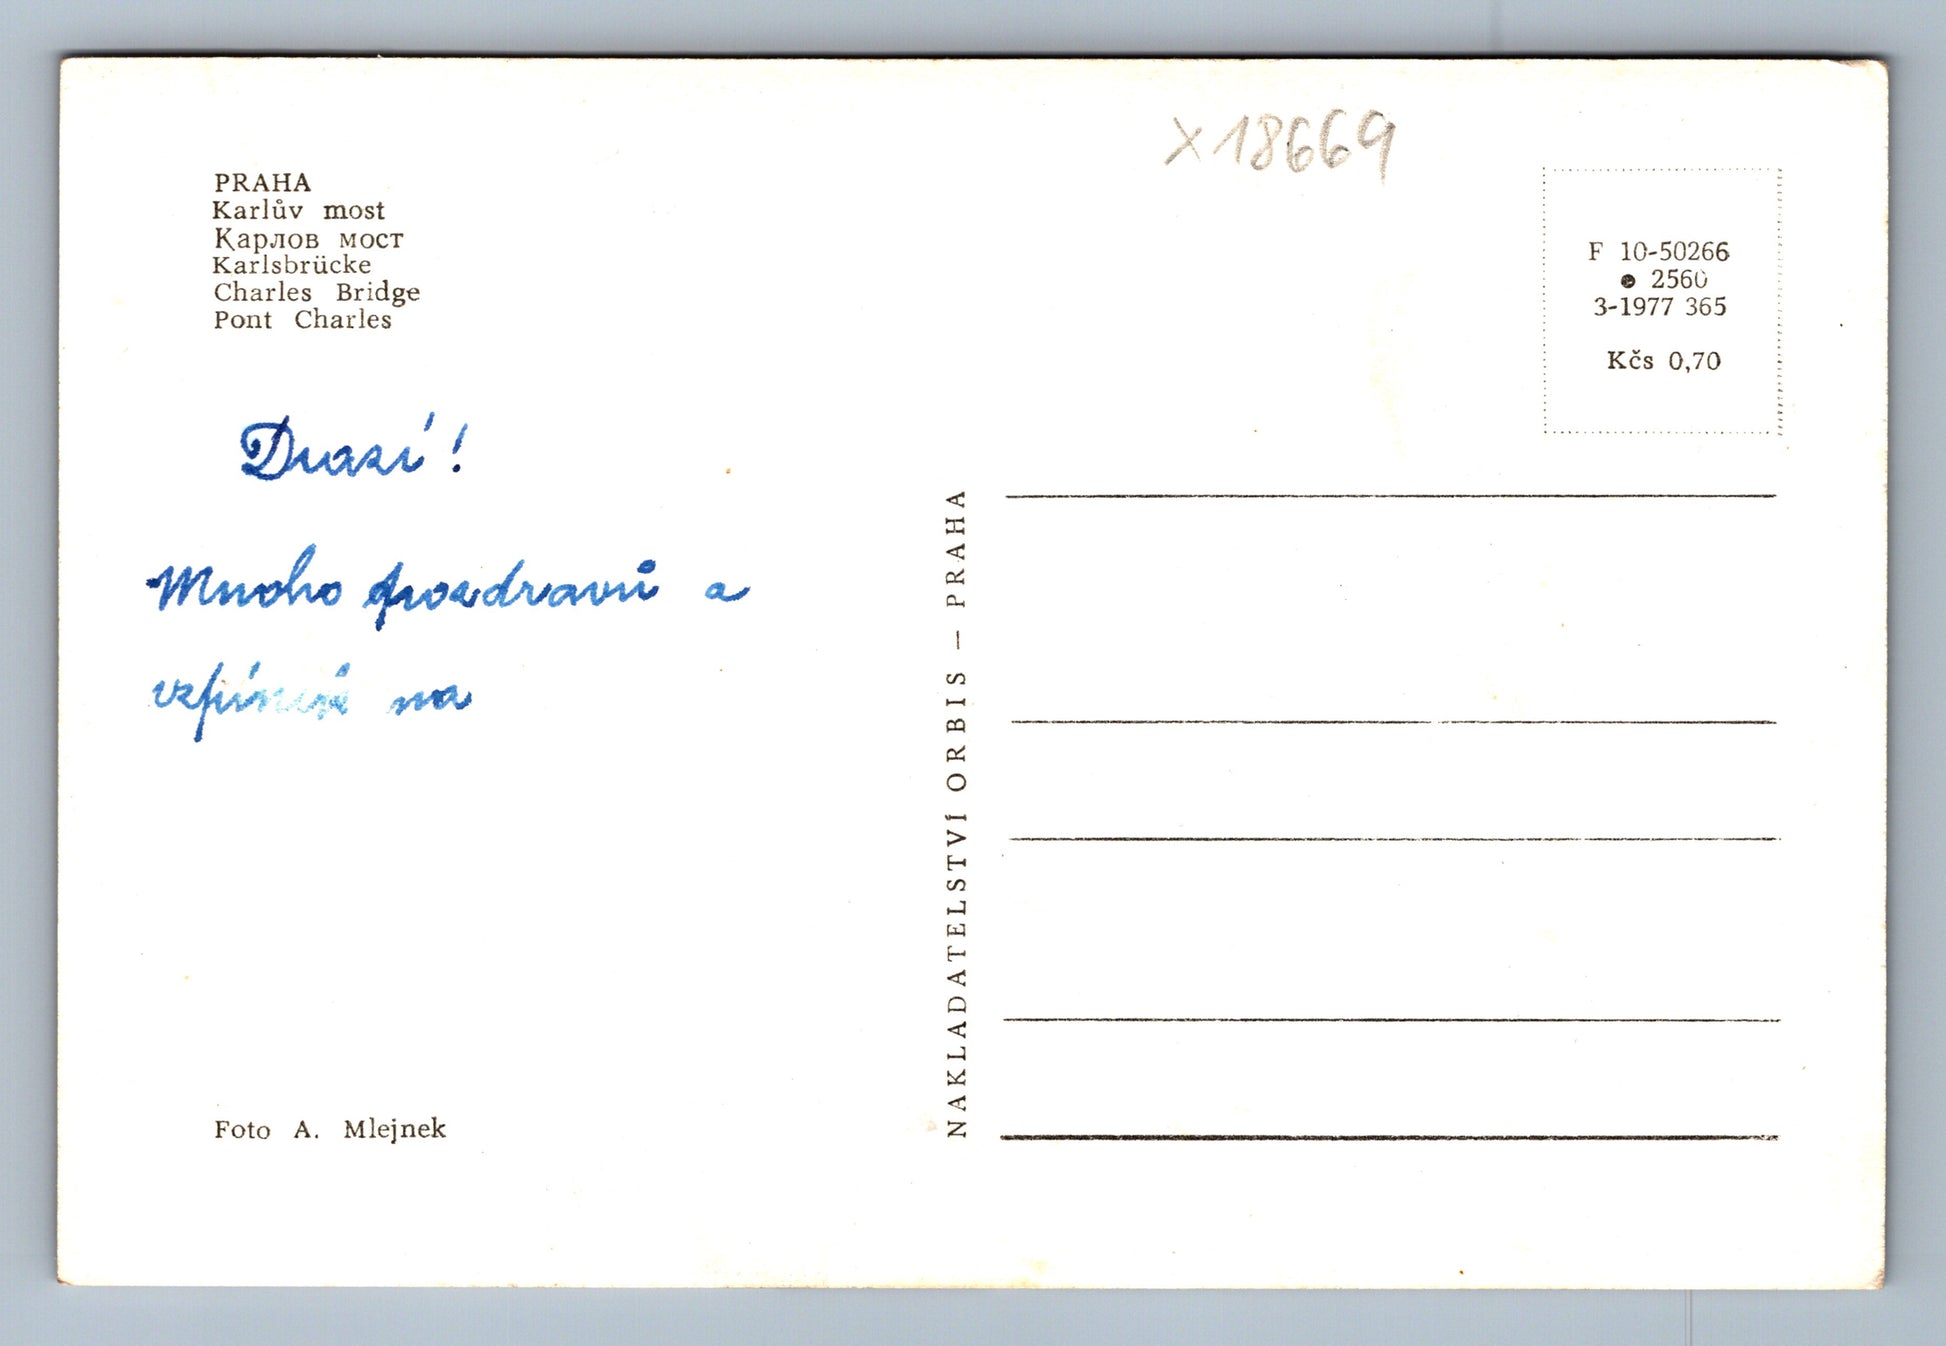 x18669
PRAHA
Karlův most
Карлов мост
Karlsbrücke
Charles Bridge
Pont Charles
F 10-50266
● 2560
3-1977 365
Kčs 0,70
Drazí!
Mnoho pozdravů a
na
Foto A. Mlejnek
NAKLADATELSTVÍ ORBIS — PRAHA